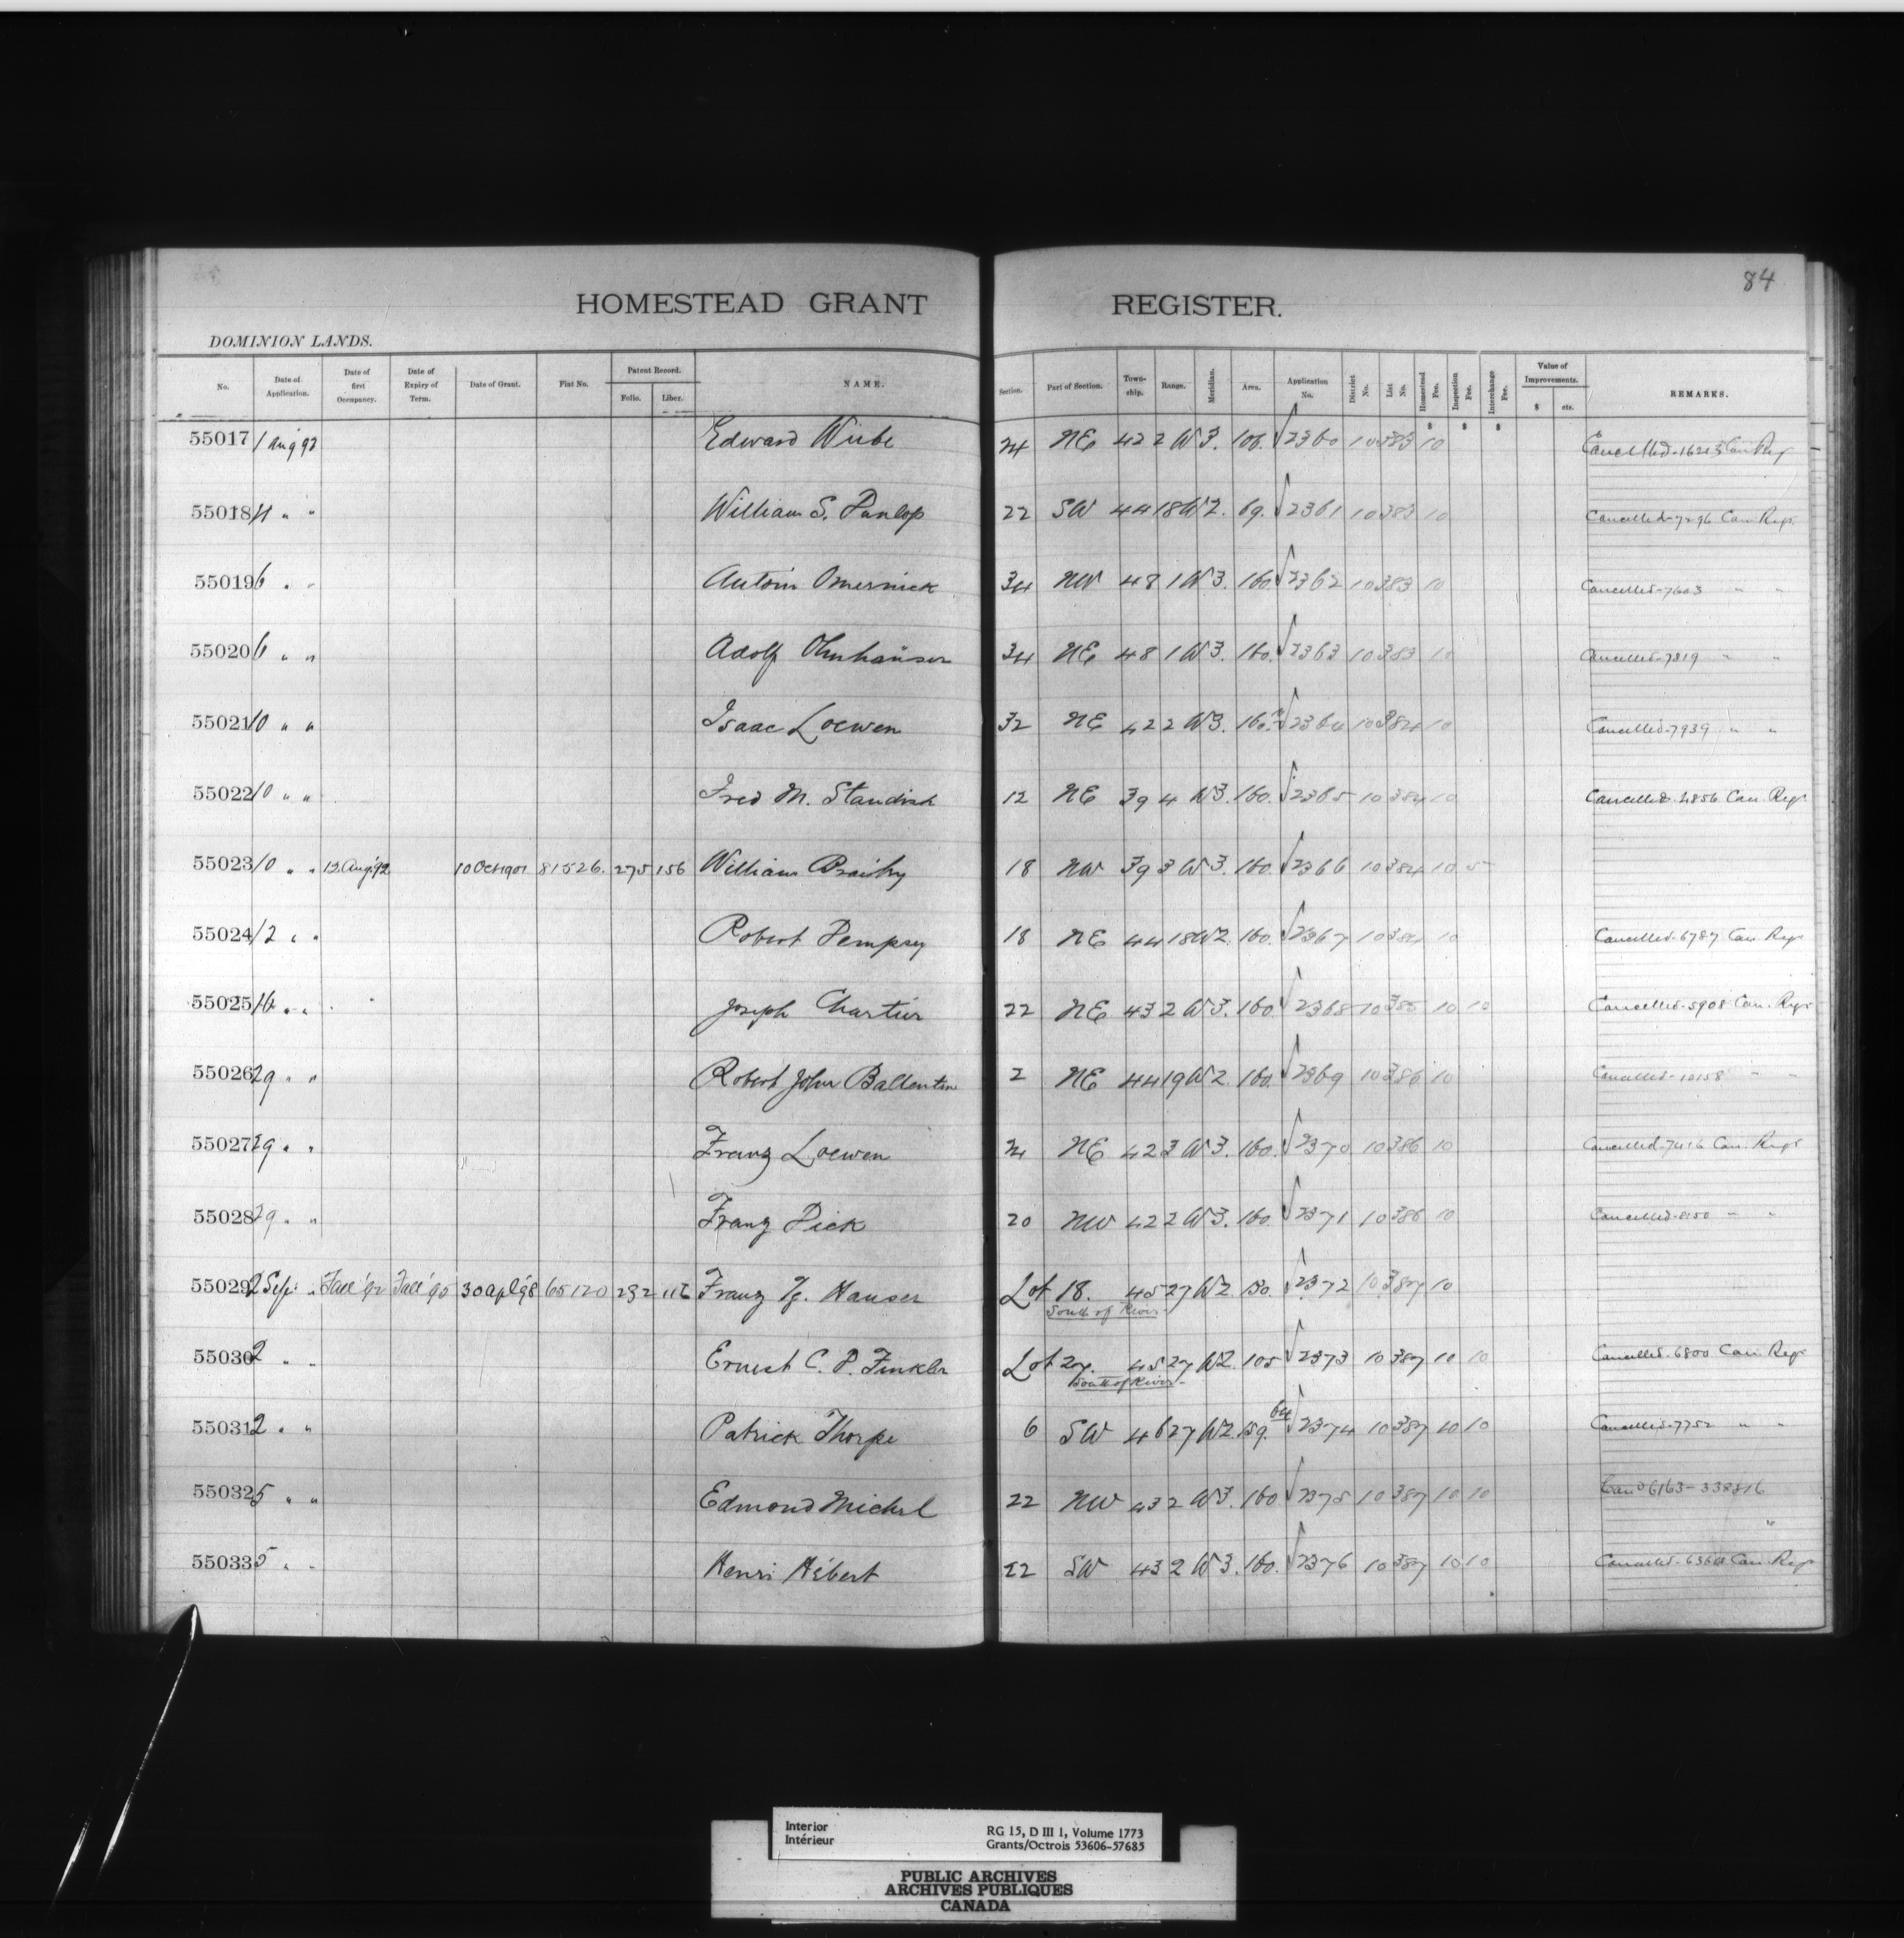 84
HOMESTEAD GRANT REGISTER.
DOMINION LANDS.
No. Date of Application. Date of first Occupancy. Date of Expiry of Term. Date of Grant. Fiat No. Patent Record. Folio. Liber. NAME. Section. Part of Section. Town-ship. Range. Meridian. Area. Application No. District No. List No. Homestead Fee. Inspection Fee. Interchange Fee. Value of Improvements. $ cts. REMARKS.
$ $ $
55017 1 Aug 92 Edward Wiebe 24 NE 42 2 W3. 160. √2360 10 383 10 Cancelled-16213 Can Reg
55018 4 " " William S. Dunlop 22 SW 44 18 W2. 69. √2361 10 383 10 Cancelled-7296 Can Regr.
55019 6 " " Antoin Omernick 34 NW 48 1 W3. 160. √2362 10 383 10 Cancelled-7603 " "
55020 6 " " Adolf Ohnhaüser 34 NE 48 1 W3. 160. √2363 10 383 10 Cancelled-7819 " "
55021 10 " " Isaac Loewen 32 NE 42 2 W3. 160. √2364 10 384 10 Cancelled-7939 " "
55022 10 " " Fred M. Standish 12 NE 39 4 W3. 160. √2365 10 384 10 Cancelled-4856 Can. Regr
55023 10 " " 12 Aug '92 10 Oct 1901 81526. 275 156 William 18 NW 39 3 W3. 160. √2366 10 384 10 5
55024 12 " " Robert Dempsey 18 NE 44 18 W2. 160. √2367 10 384 10 Cancelled-6787 Can. Regr
55025 16 " " Joseph Chartier 22 NE 43 2 W3. 160 √2368 10 385 10 10 Cancelled-5908 Can. Regr
55026 29 " " Robert John Ballentine 2 NE 44 19 W2. 160. √2369 10 386 10 Cancelled-10158 " "
55027 29 " " Franz Loewen 24 NE 42 3 W3. 160. √2370 10 386 10 Cancelled-7416 Can. Regr
55028 29 " " Franz Dick 20 NW 42 2 W3. 160. √2371 10 386 10 Cancelled-8150 " "
55029 2 Sep. " Fall '92 Fall '95 30 Apl '98 65120 232 116 Franz G. Hauser Lot 18. 45 27 W2. 130. √2372 10 387 10
South of River
55030 2 " " Ernest C. P. Finkler Lot 27. 45 27 W2. 105 √2373 10 387 10 10 Cancelled-6800 Can Regr
South of River
55031 2 " " Patrick Thorpe 6 SW 46 27 W2. 159. 64 √2374 10 387 10 10 Cancelled-7752 " "
55032 5 " " Edmond Michel 22 NW 43 2 W3. 160 √2375 10 387 10 10 Canc'd 6163-338816
"
55033 5 " " Henri Hébert 22 SW 43 2 W3. 160. √2376 10 387 10 10 Cancelled-6364 Can Regr
Interior
Intérieur
RG 15, D III 1, Volume 1773
Grants/Octrois 53606-57685
PUBLIC ARCHIVES
ARCHIVES PUBLIQUES
CANADA